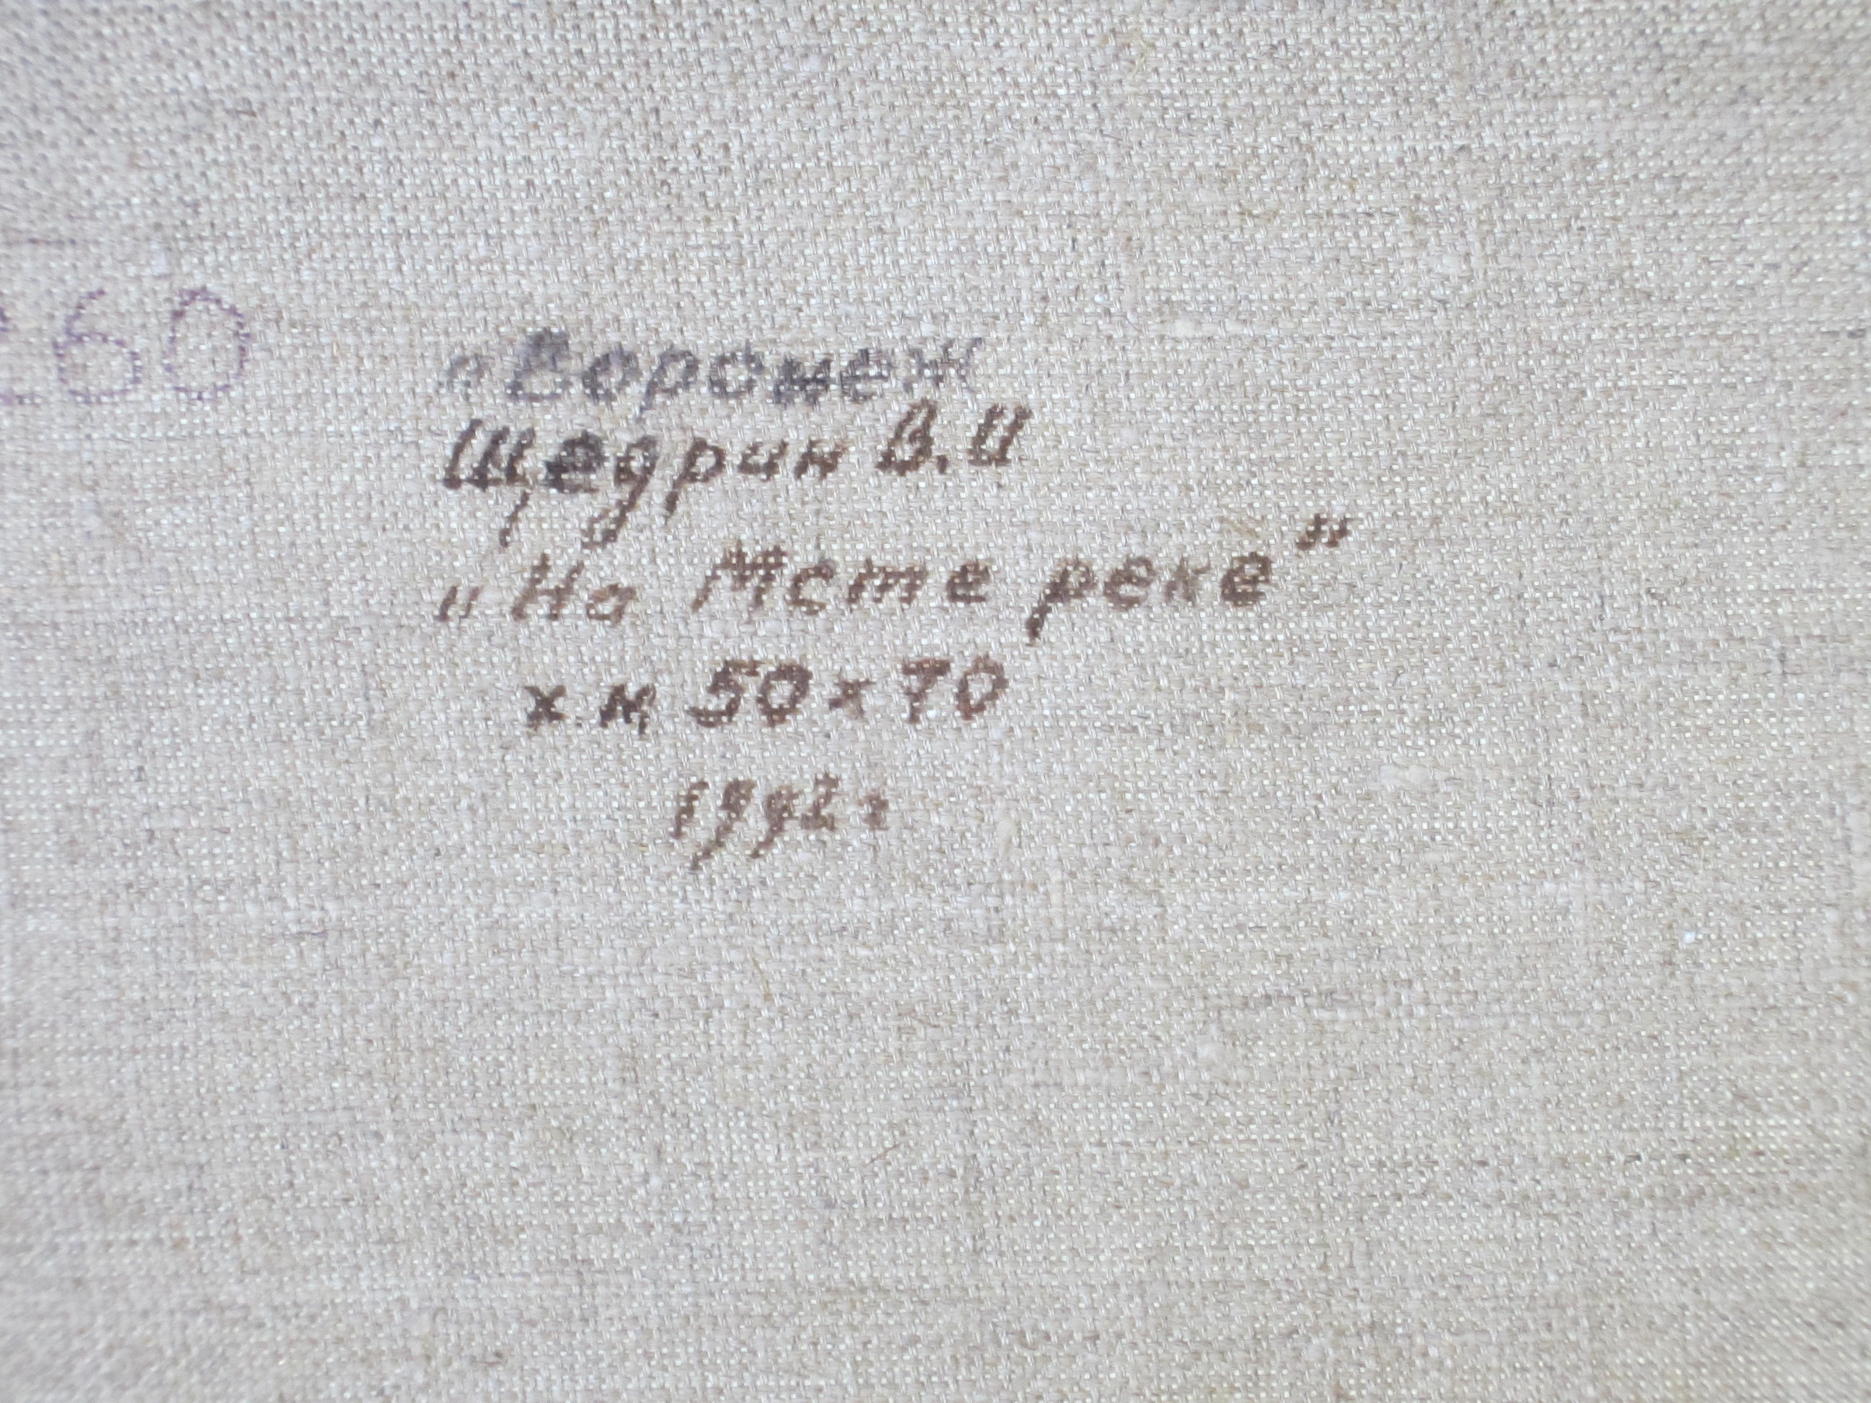 260
г Воронеж
Щедрин В. И
„На Мсте реке"
х.м 50х70
1992г